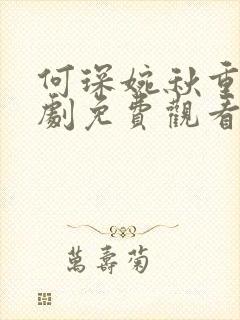 何琛婉秋重
劇免費觀看
萬壽菊